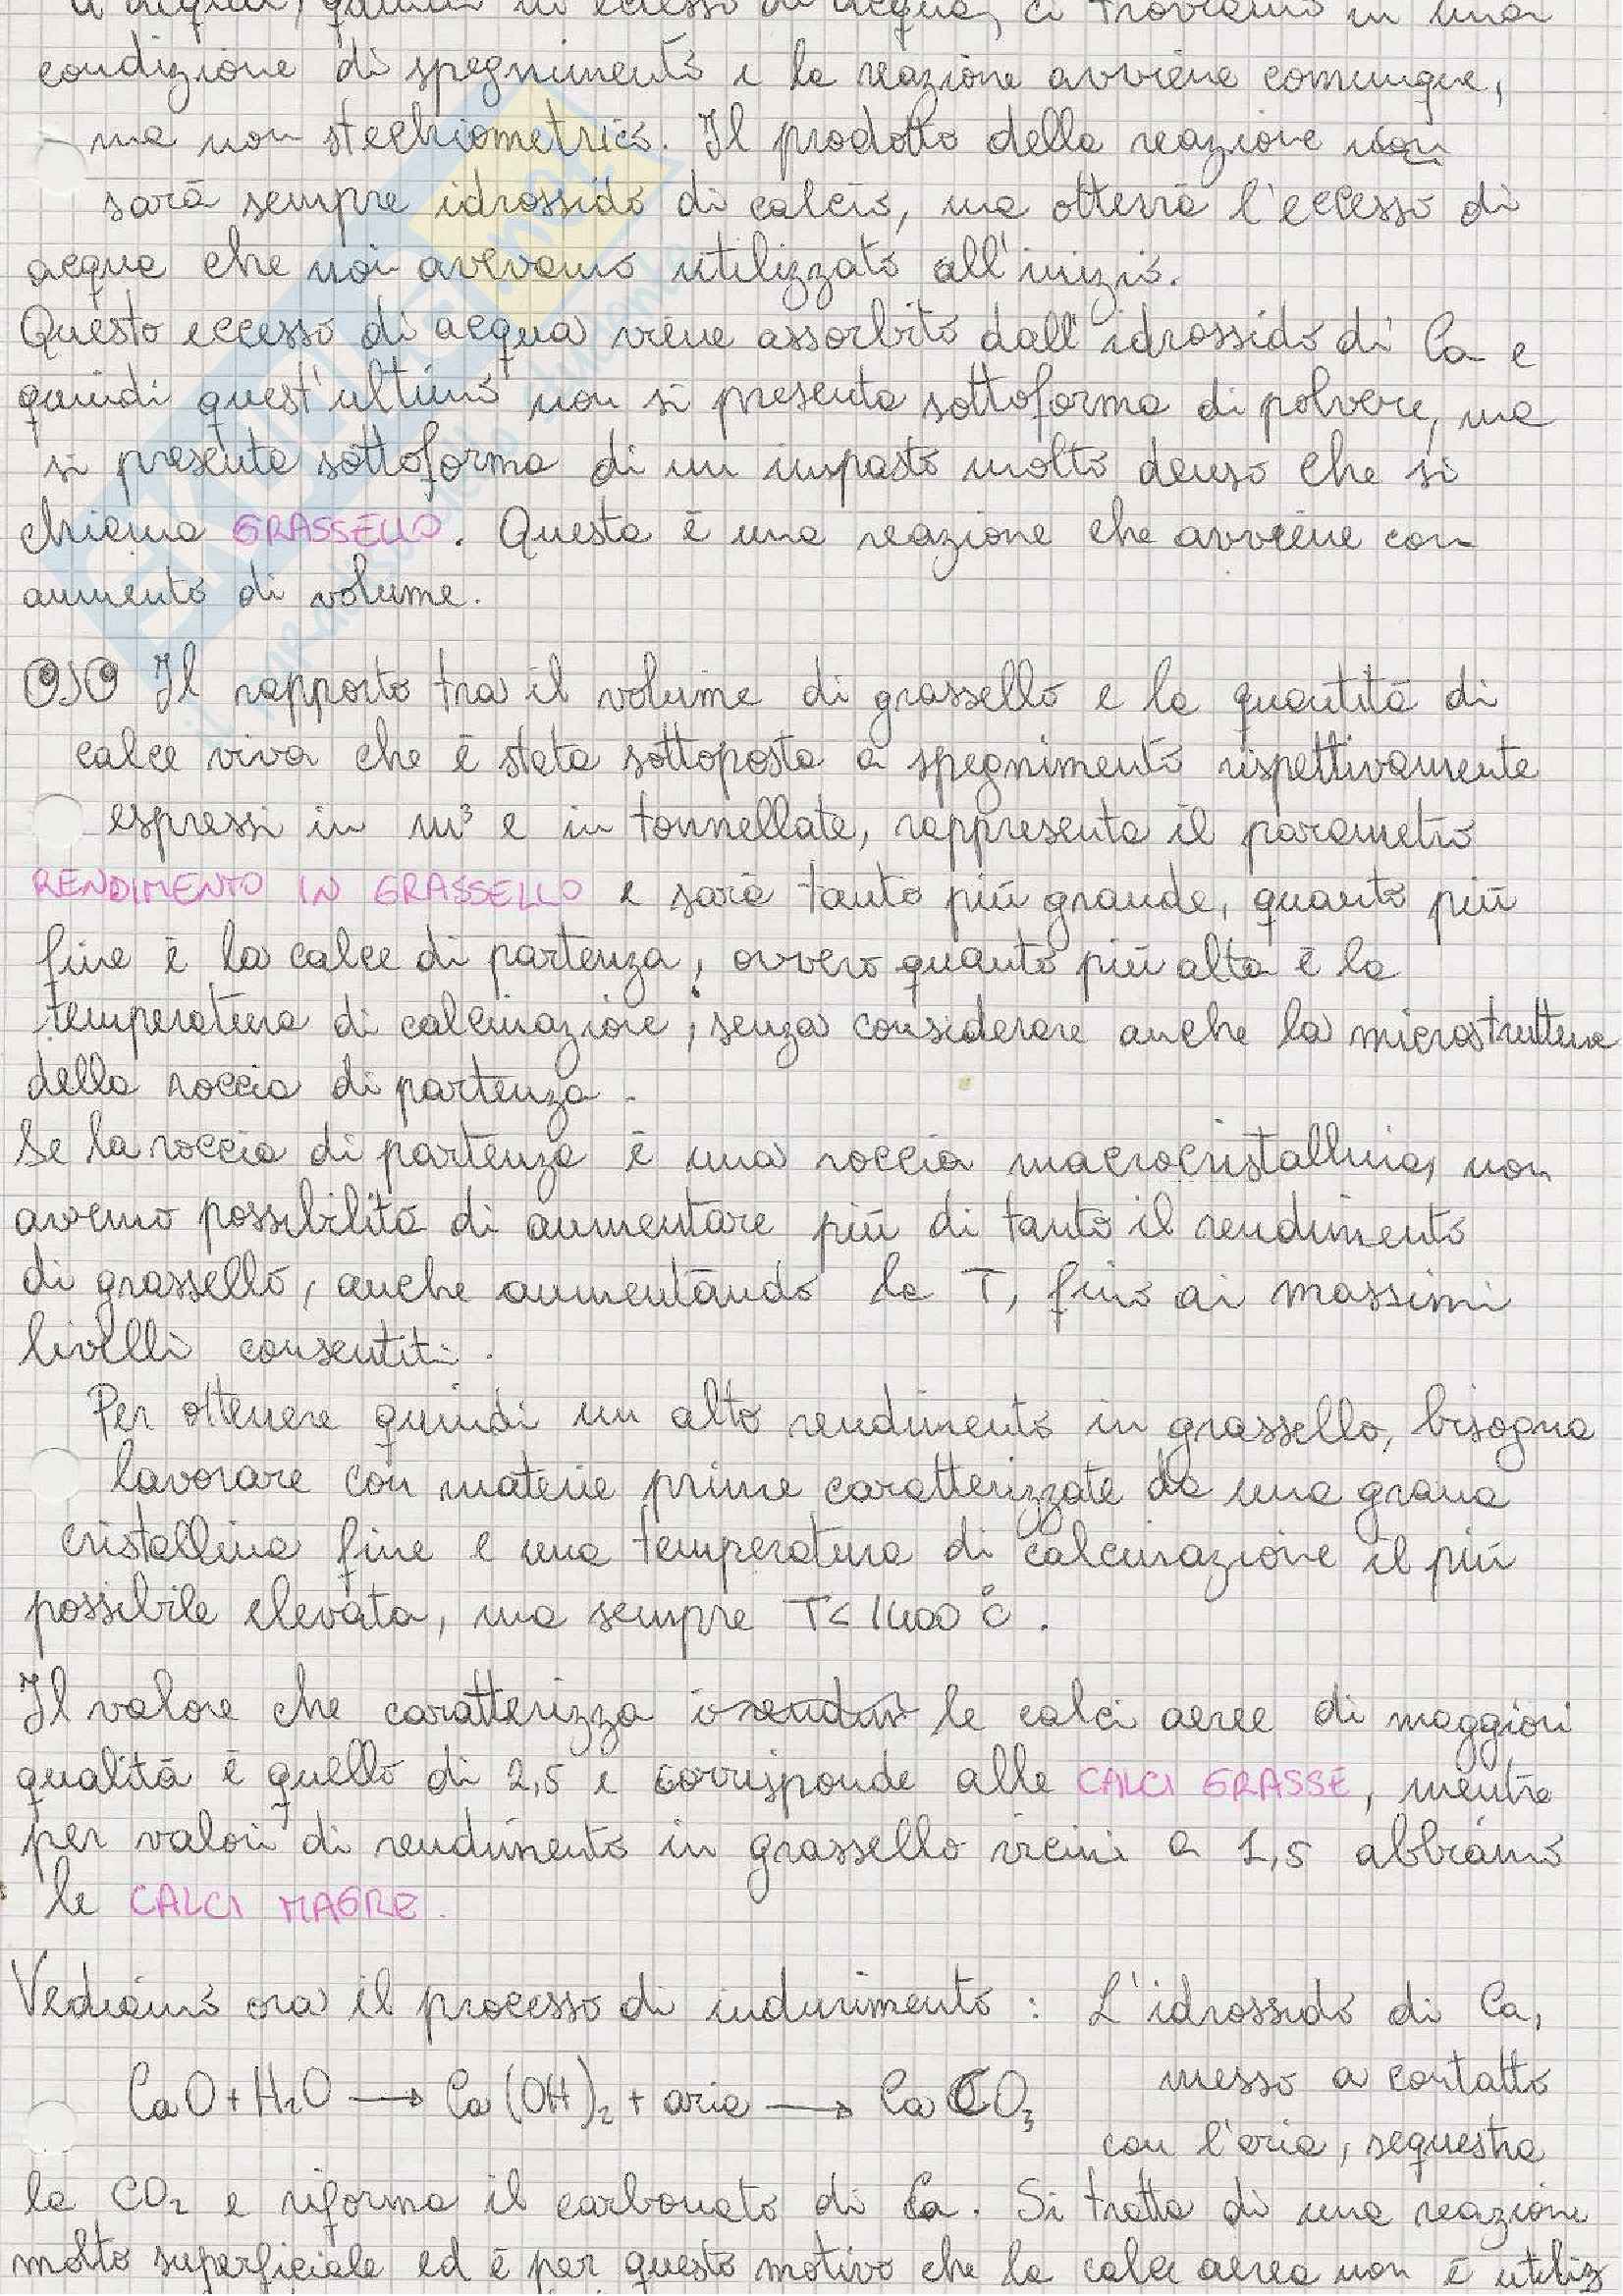 di acqua, quindi in eccesso di acqua, ci troviamo in una
condizione di spegnimento e la reazione avviene comunque,
ma non stechiometrica. Il prodotto della reazione non
sarà sempre idrossido di calcio, ma otterrà l'eccesso di
acqua che noi avevamo utilizzato all'inizio.
Questo eccesso di acqua viene assorbito dall'idrossido di Ca e
quindi quest'ultimo non si presenta sottoforma di polvere, ma
si presenta sottoforma di un impasto molto denso che si
chiama GRASSELLO. Questa è una reazione che avviene con
aumento di volume.
Il rapporto tra il volume di grassello e la quantità di
calce viva che è stata sottoposta a spegnimento rispettivamente
espressi in m³ e in tonnellate, rappresenta il parametro
RENDIMENTO IN GRASSELLO e sarà tanto più grande, quanto più
fine è la calce di partenza, ovvero quanto più alta è la
temperatura di calcinazione, senza considerare anche la microstruttura
della roccia di partenza.
Se la roccia di partenza è una roccia macrocristallina, non
avremo possibilità di aumentare più di tanto il rendimento
di grassello, anche aumentando la T, fino ai massimi
livelli consentiti.
Per ottenere quindi un alto rendimento in grassello, bisogna
lavorare con materie prime caratterizzate da una grana
cristallina fine e una temperatura di calcinazione il più
possibile elevata, ma sempre T< 1400°C.
Il valore che caratterizza le calci aeree di maggiori
qualità è quello di 2,5 e corrisponde alle CALCI GRASSE, mentre
per valori di rendimento in grassello vicini a 1,5 abbiamo
le CALCI MAGRE.
Vediamo ora il processo di indurimento: L'idrossido di Ca,
messo a contatto
CaO + H₂O → Ca(OH)₂ + aria → CaCO₃
con l'aria, sequestra
la CO₂ e riforma il carbonato di Ca. Si tratta di una reazione
molto superficiale ed è per questo motivo che la calce aerea non è utiliz